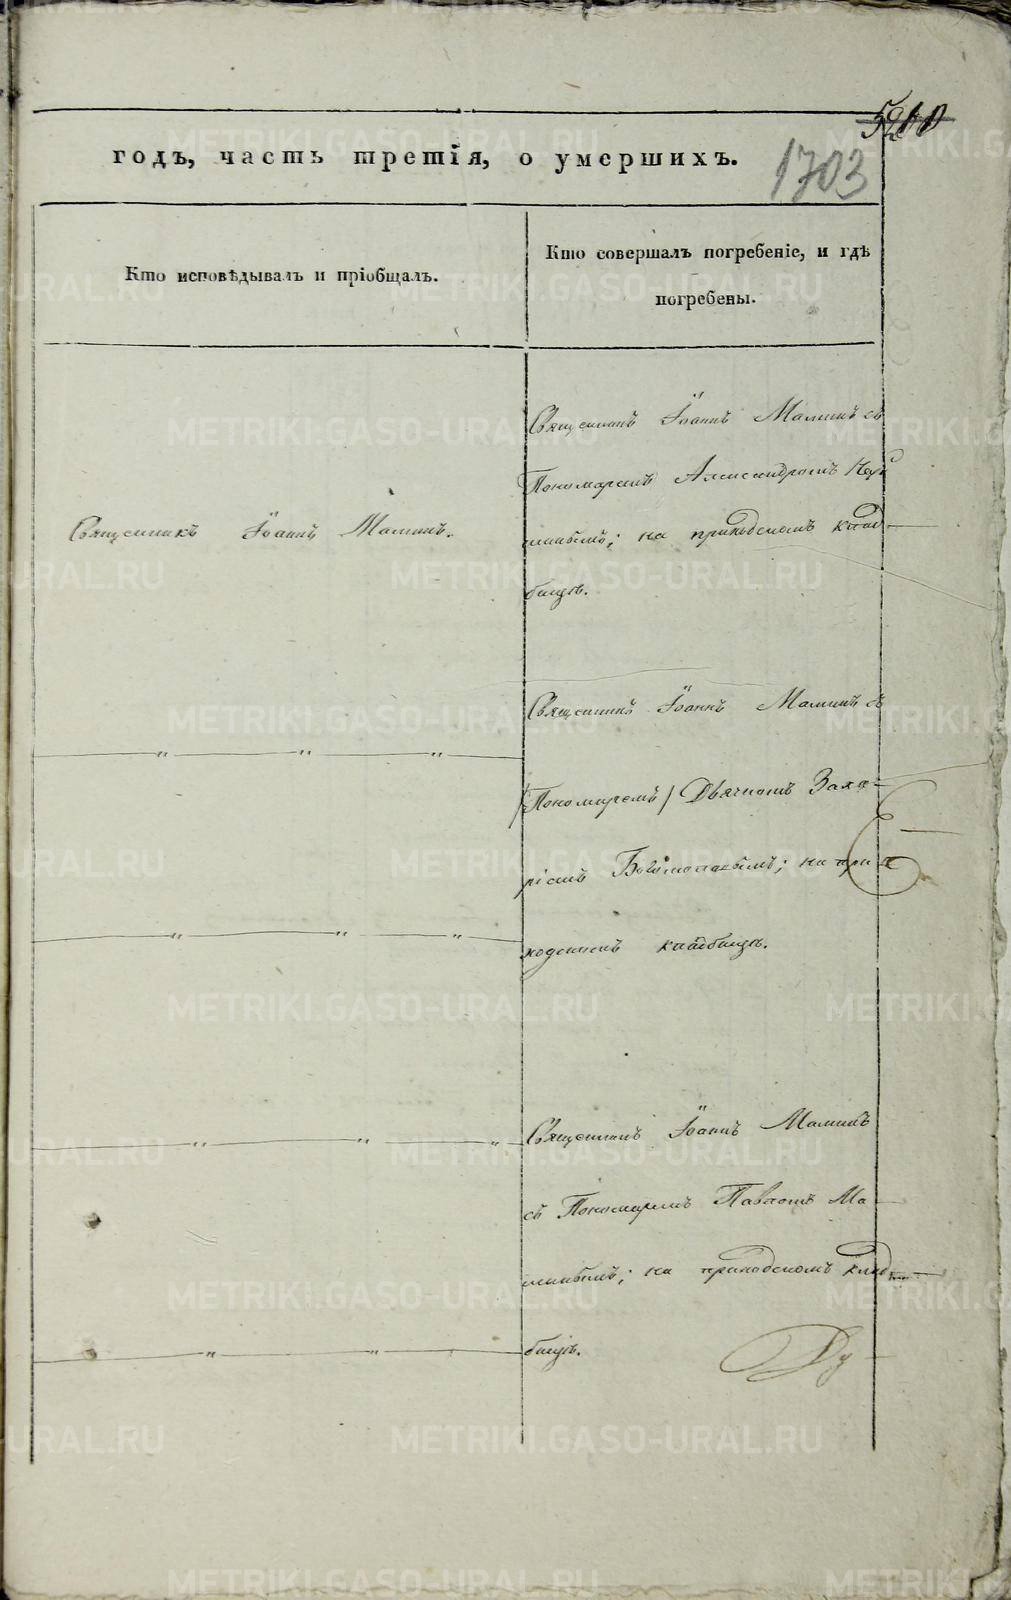 1703
годъ, часть третія, о умершихъ.
Кто исповѣдывалъ и пріобщалъ.
Кто совершалъ погребеніе, и гдѣ
погребены.
Священникъ Іоаннъ Маминъ.
Священникъ Іоаннъ Маминъ съ
Пономаремъ Александромъ
на приходскомъ клад-
бищѣ.
Священникъ Іоаннъ Маминъ съ
Пономаремъ / Дьячкомъ Заха-
ріемъ Богомоловымъ; на при
ходскомъ кладбищѣ.
Священникъ Іоаннъ Маминъ
съ Пономаремъ Павломъ Ма-
минымъ; на приходскомъ клад-
бищѣ.
Ду-
METRIKI.GASO-URAL.RU